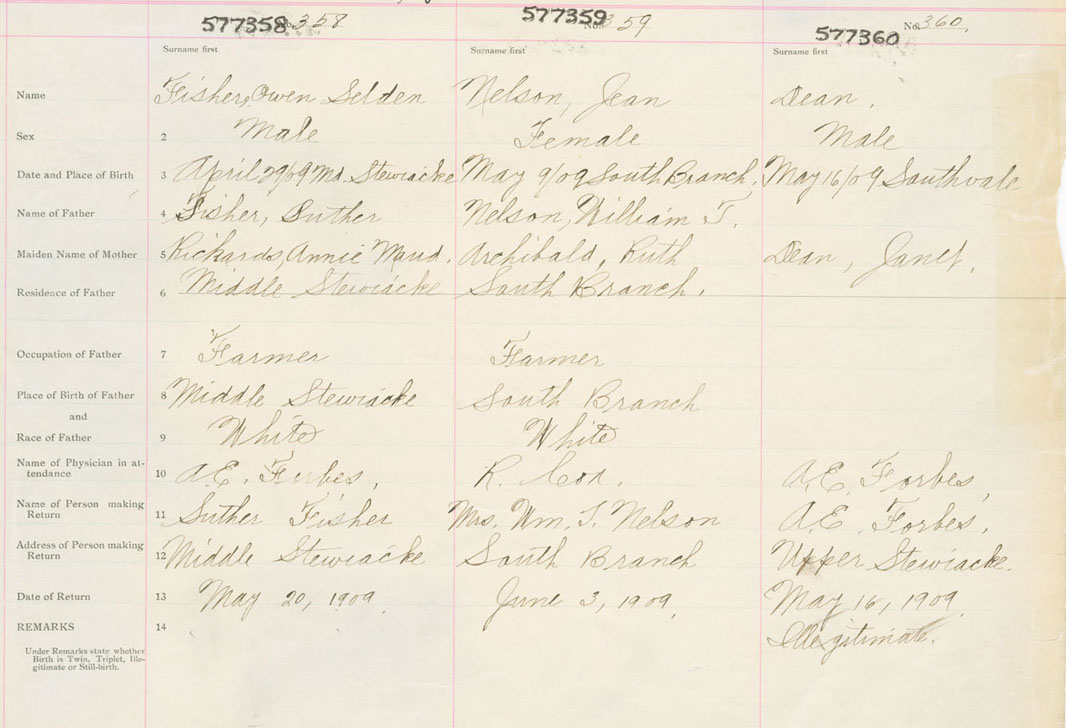 577358 No. 358 577359 No. 359 577360 No. 360
Surname first Surname first Surname first
Name Fisher, Owen Selden Nelson, Jean Dean.
Sex 2 Male Female Male
Date and Place of Birth 3 April 29/09 Md. Stewiacke May 9/09 South Branch. May 16/09 Southvale
Name of Father 4 Fisher, Suther Nelson, William T.
Maiden Name of Mother 5 Rickards, Annie Maud. Archibald, Ruth Dean, Janet.
Residence of Father 6 Middle Stewiacke South Branch.
Occupation of Father 7 Farmer Farmer
Place of Birth of Father 8 Middle Stewiacke South Branch
and
Race of Father 9 White White
Name of Physician in at-
tendance 10 A.E. Forbes, R. Cox. A.E. Forbes,
Name of Person making
Return 11 Suther Fisher Mrs. Wm. T. Nelson A.E. Forbes.
Address of Person making
Return 12 Middle Stewiacke South Branch Upper Stewiacke.
Date of Return 13 May 20, 1909 June 3, 1909, May 16, 1909,
REMARKS 14 Illegitimate.
Under Remarks state whether
Birth is Twin, Triplet, Ille-
gitimate or Still-birth.